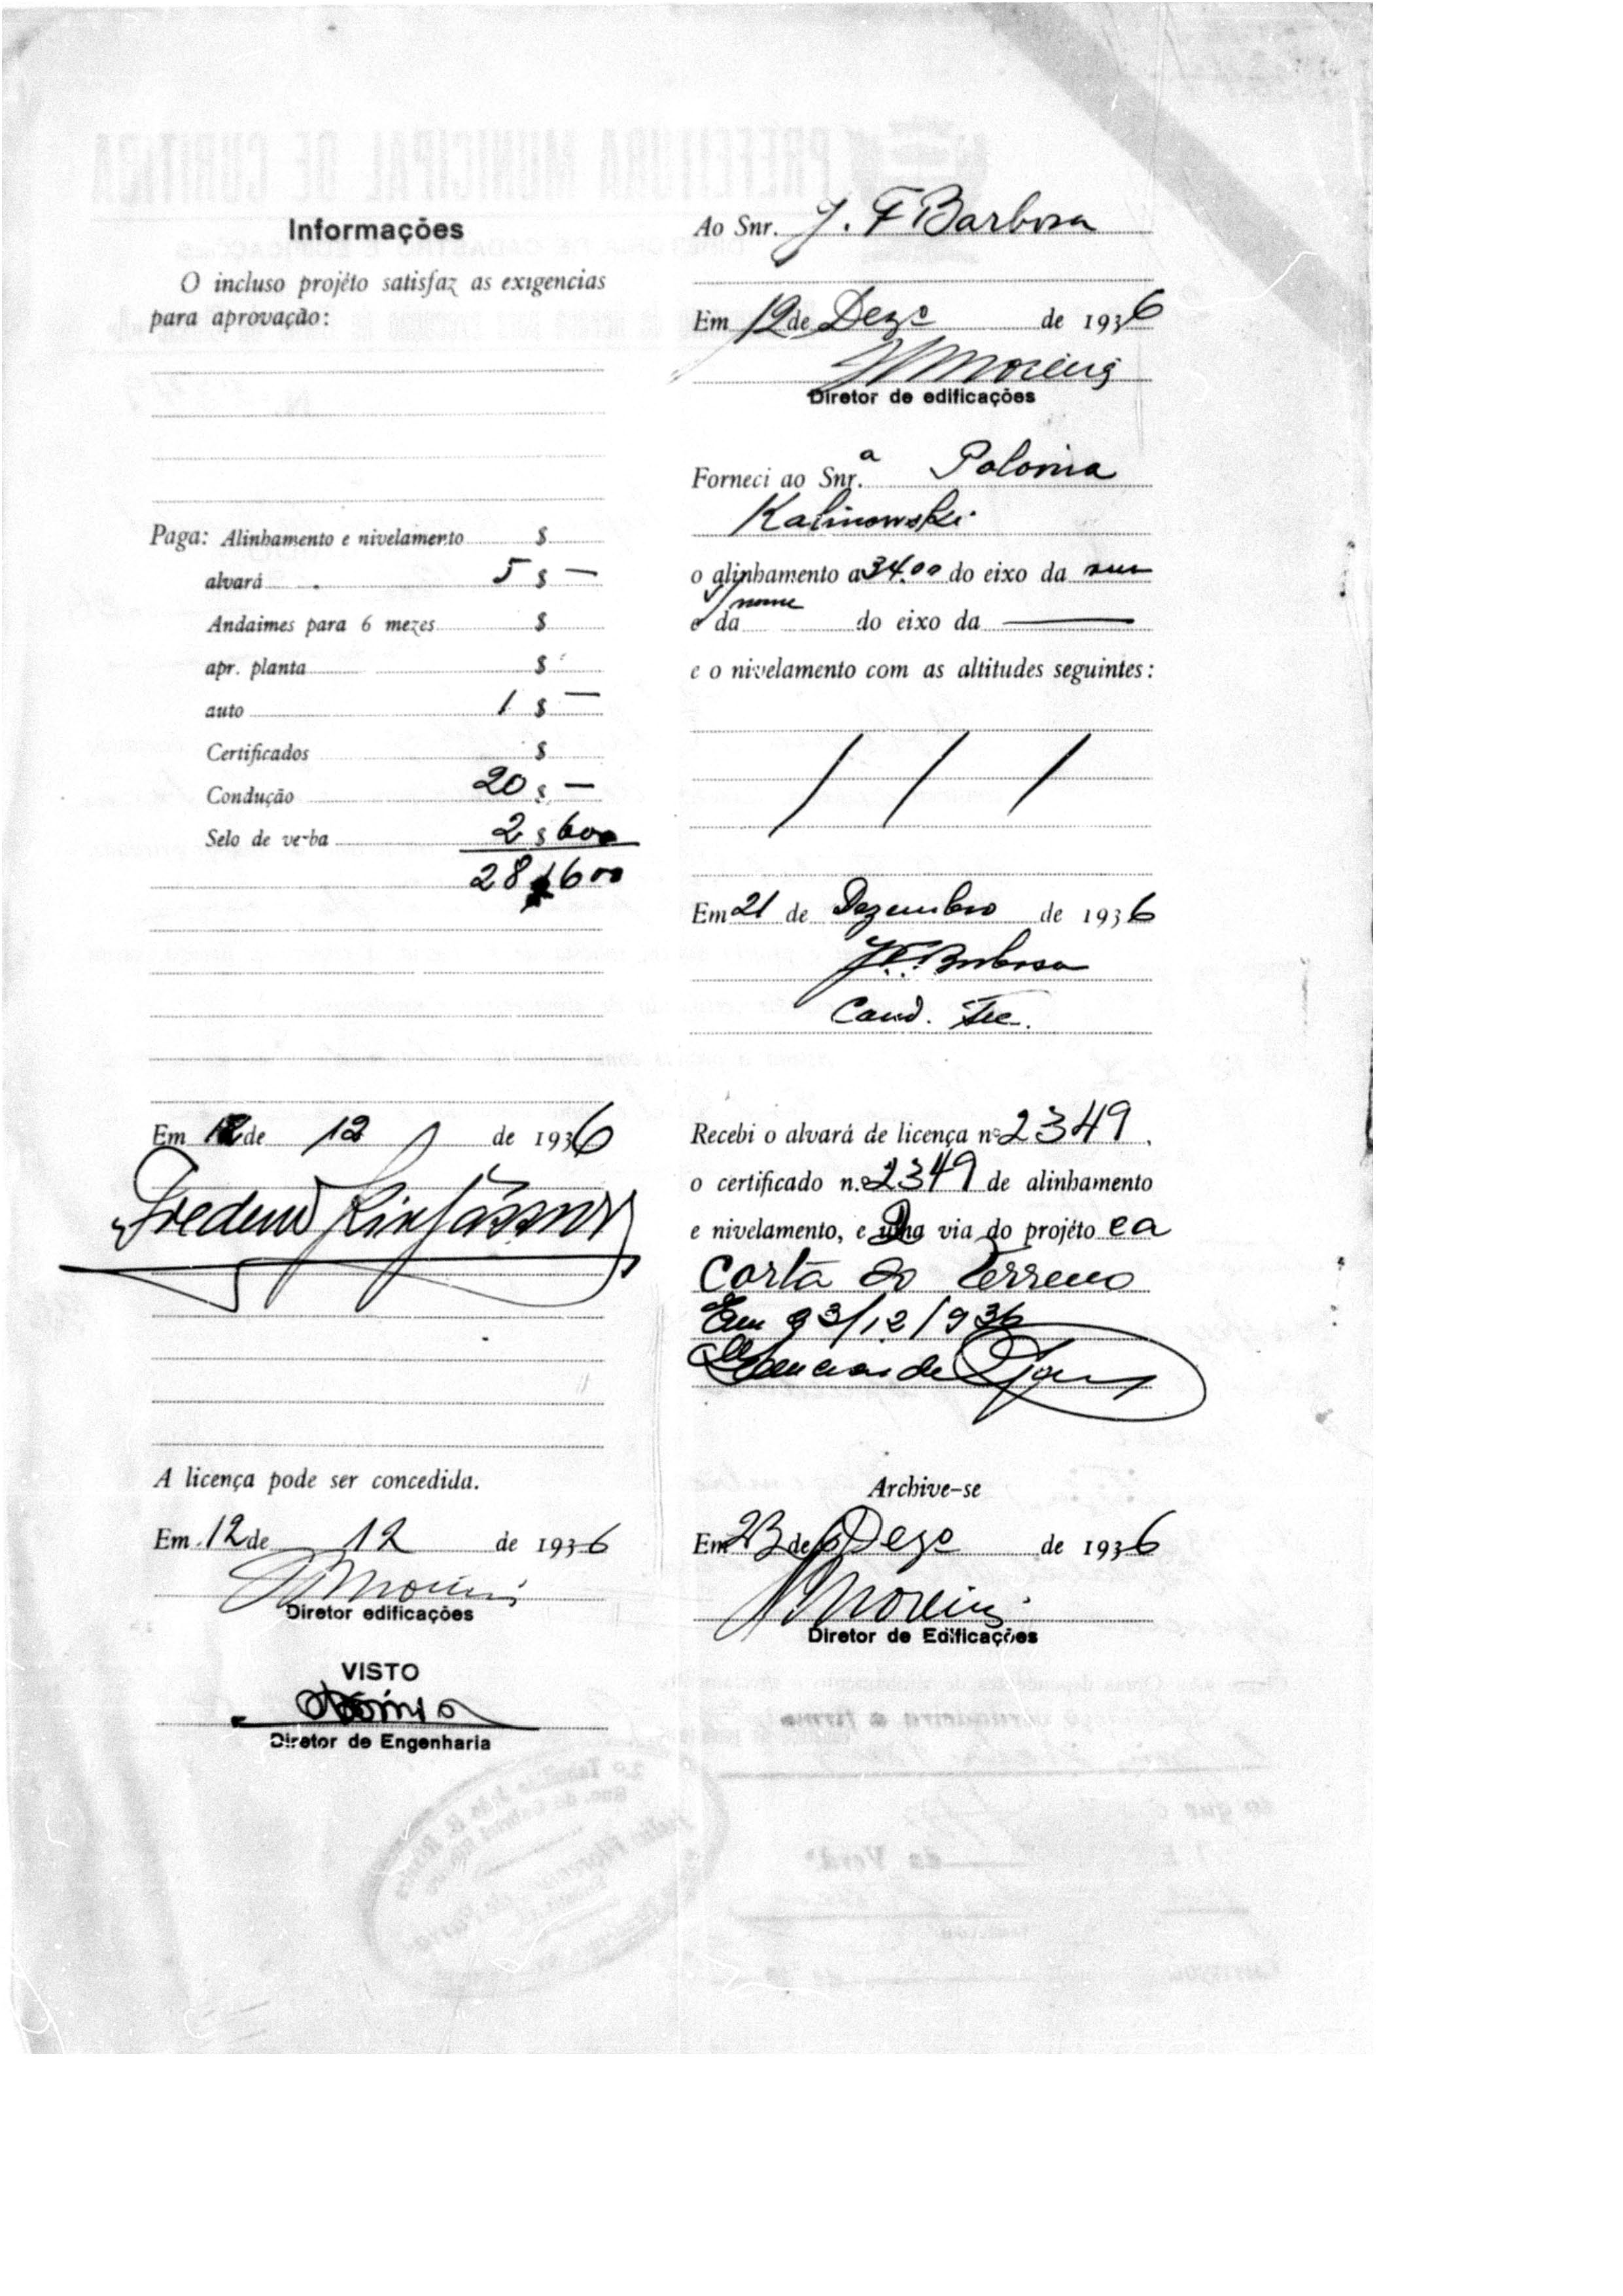 Informações
O incluso projéto satisfaz as exigencias
para aprovação:
Paga: Alinhamento e nivelamento $
alvará 5 $ —
Andaimes para 6 mezes $
apr. planta $
auto 1 $ —
Certificados $
Condução 20 $ —
Selo de verba 2 $ 600
28$600
Em 12 de 12 de 1936
A licença pode ser concedida.
Em 12 de 12 de 1936
Moreira
Diretor edificações
VISTO
Diretor de Engenharia
Ao Snr. J. F Barbosa
Em 12 de Dezo de 1936
Moreira
Diretor de edificações
Forneci ao Snr.a Polonia
Kalinowski
o alinhamento a 34.00 do eixo da rua
s/nome
e da do eixo da —
e o nivelamento com as altitudes seguintes:
/ / /
Em 21 de Dezembro de 1936
J.F. Barbosa
Cond. Tec.
Recebi o alvará de licença nº 2349.
o certificado n. 2349 de alinhamento
e nivelamento, e uma via do projéto e a
Carta do Terreno
Em 23/12/936
Archive-se
Em 23 de Dezo de 1936
Moreira
Diretor de Edificações